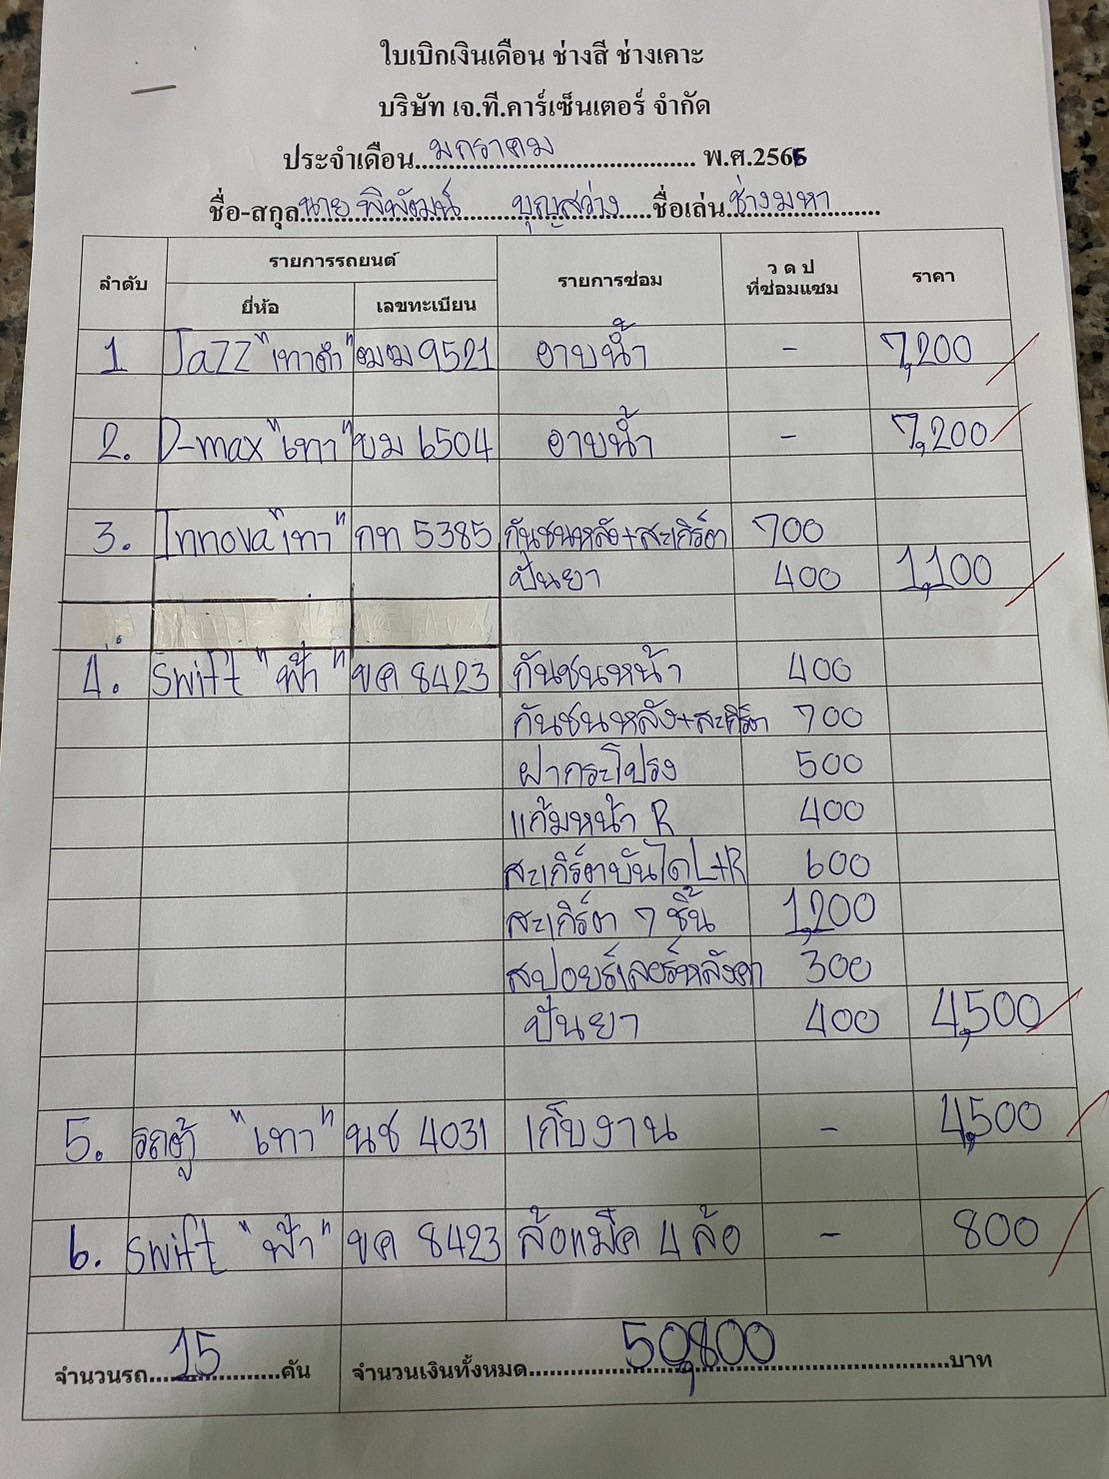 ใบเบิกเงินเดือน ช่างสี ช่างเคาะ
บริษัท เจ.ที.คาร์เซ็นเตอร์ จำกัด
ประจำเดือน...มกราคม... พ.ศ.2566
ชื่อ-สกุล...นาย พิพัฒน์ บุญสว่าง...ชื่อเล่น...ช่างมหา...
ลำดับ รายการรถยนต์ รายการซ่อม ว ด ป ที่ซ่อมแซม ราคา
ยี่ห้อ เลขทะเบียน
1 Jazz "เทาดำ" ฌฌ 9521 อาบน้ำ - 7,200
2. D-max "เทา" ขม 6504 อาบน้ำ - 7,200
3. Innova "เทา" กท 5385 กันชนหลัง+สะเกิร์ต 700
ปั่นยา 400 1,100
4. Swift "ฟ้า" ขค 8423 กันชนหน้า 400
กันชนหลัง+สะเกิร์ต 700
ฝากระโปรง 500
แก้มหน้า R 400
สะเกิร์ตบันได L+R 600
สะเกิร์ต 7 ชิ้น 1,200
สปอยร์เลอร์หลังคา 300
ปั่นยา 400 4,500
5. รถตู้ "เทา" นช 4031 เก็บงาน - 4,500
6. Swift "ฟ้า" ขค 8423 ล้อแม็ค 4 ล้อ - 800
จำนวนรถ...15...คัน จำนวนเงินทั้งหมด...50,800...บาท